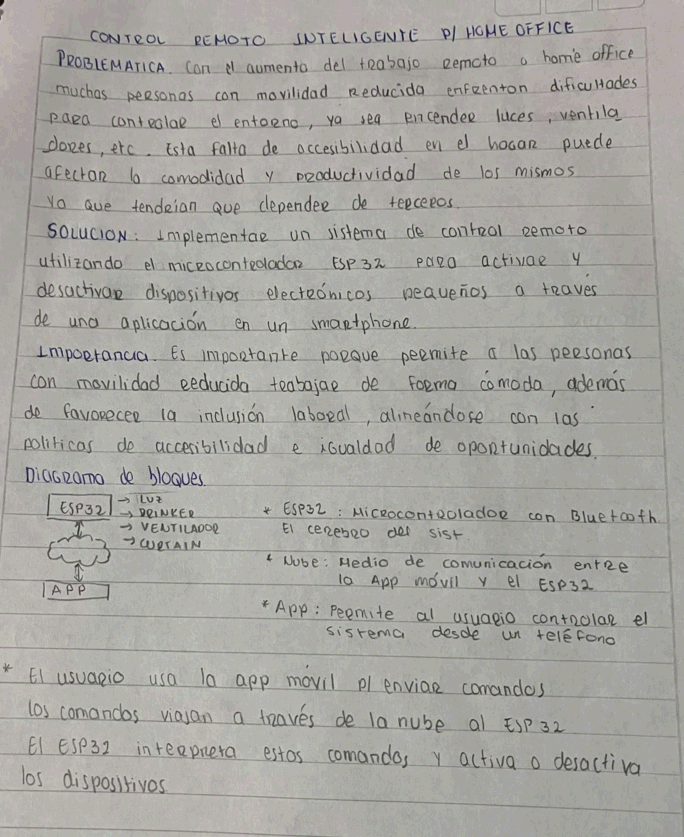 CONTROL REMOTO INTELIGENTE P/ HOME OFFICE
PROBLEMATICA. Con el aumento del trabajo remoto o home office
muchas personas con movilidad reducida enfrentan dificultades
para controlar el entorno, ya sea encender luces, ventila
dores, etc. Esta falta de accesibilidad en el hogar puede
afectar la comodidad y productividad de los mismos
ya que tendrían que depender de terceros.
SOLUCION: Implementar un sistema de control remoto
utilizando el microcontrolador ESP32 para activar y
desactivar dispositivos electrónicos pequeños a través
de una aplicación en un smartphone.
Importancia. Es importante porque permite a las personas
con movilidad reducida trabajar de forma cómoda, además
de favorecer la inclusión laboral, alineándose con las
politicas de accesibilidad e igualdad de oportunidades.
Diagrama de bloques.
ESP32 → LUZ
→ DRINKER
→ VENTILADOR
→ CURTAIN
APP
* ESP32: Microcontrolador con Bluetooth.
El cerebro del sist
* Nube: Medio de comunicación entre
la App móvil y el ESP32
* App: Permite al usuario controlar el
sistema desde un teléfono
* El usuario usa la app móvil p/ enviar comandos
los comandos viajan a través de la nube al ESP32
El ESP32 interpreta estos comandos y activa o desactiva
los dispositivos